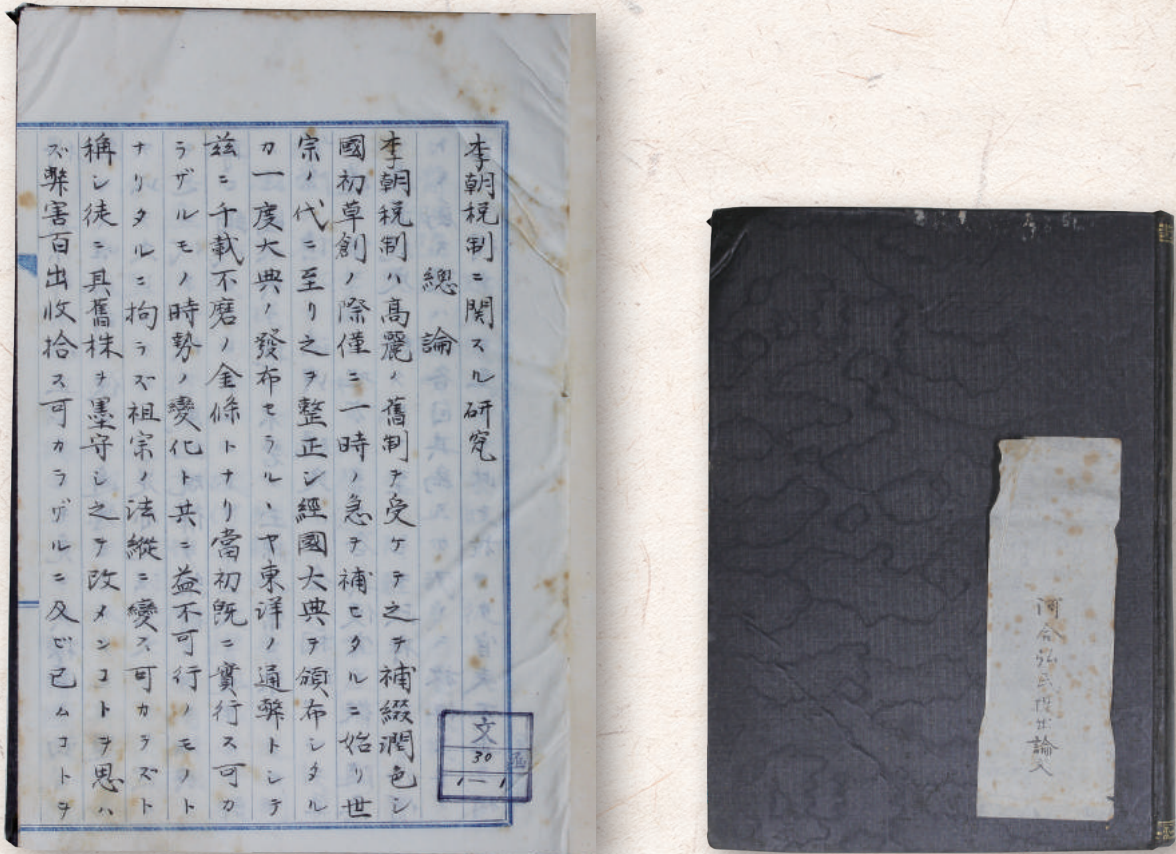 李朝税制ニ関スル研究
總論
李朝税制ハ高麗ノ舊制ヲ受ケテ之ヲ補綴潤色シ
國初草創ノ際僅ニ一時ノ急ヲ補セタルニ始リ世
宗ノ代ニ至リ之ヲ整正シ經國大典ヲ頒布シタル
カ一度大典ノ發布セラルヽヤ東洋ノ通弊トシテ
茲ニ千載不磨ノ金條トナリ當初既ニ實行ス可カ
ラザルモノ時勢ノ變化ト共ニ益不可行ノモノト
ナリタルニ拘ラズ祖宗ノ法縱ニ變ス可カラズト
稱シ徒ニ其舊株ヲ墨守シ之ヲ改メンコトヲ思ハ
ズ弊害百出收拾ス可カラザルニ及ビ已ムコトヲ
文
30
1-1
河合弘民提出論文